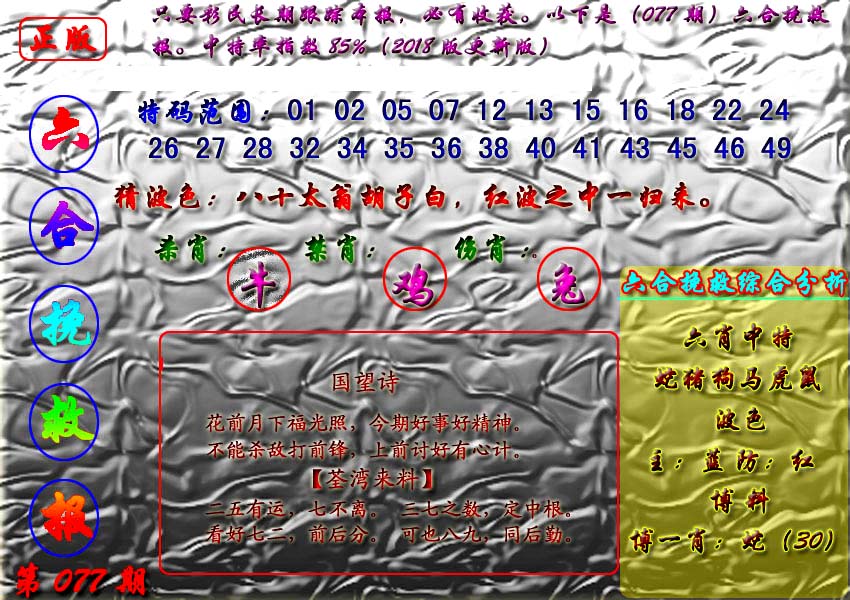 正版
只要彩民长期跟踪本报，必有收获。以下是（077期）六合挽救
报。中特率指数85%（2018版更新版）
六合挽救报
第077期
特码范围：01 02 05 07 12 13 15 16 18 22 24
26 27 28 32 34 35 36 38 40 41 43 45 46 49
猜波色：八十太翁胡子白，红波之中一归来。
杀肖：牛 禁肖：鸡 伤肖：兔。
国望诗
花前月下福光照，今期好事好精神。
不能杀敌打前锋，上前讨好有心计。
【荃湾来料】
二五有运，七不离。 三七之数，定中根。
看好七二，前后分。 可也八九，同后勤。
六合挽救综合分析
六肖中特
蛇猪狗马虎鼠
波色
主：蓝防：红
博料
博一肖：蛇（30）